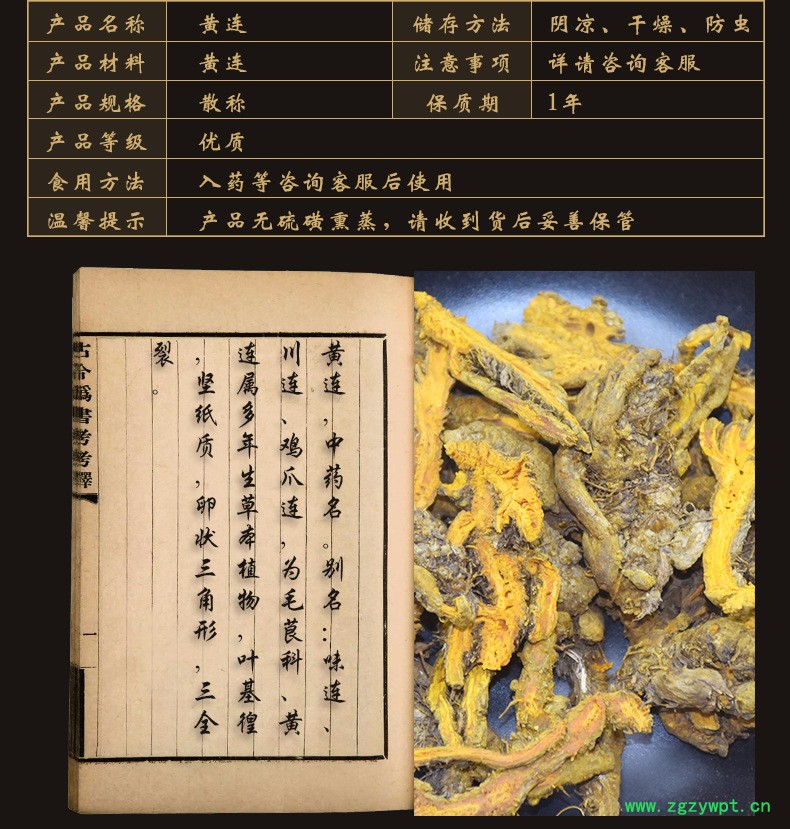 产品名称 黄连 储存方法 阴凉、干燥、防虫
产品材料 黄连 注意事项 详请咨询客服
产品规格 散称 保质期 1年
产品等级 优质
食用方法 入药等咨询客服后使用
温馨提示 产品无硫磺熏蒸，请收到货后妥善保管
黄连，中药名。别名：味连、
川连、鸡爪连，为毛茛科、黄
连属多年生草本植物，叶基徨
，坚纸质，卵状三角形，三全
裂。
書考考釋
一
www.zgzywpt.cn